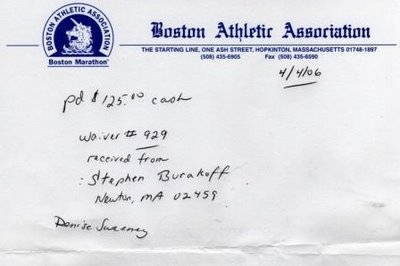 BOSTON ATHLETIC ASSOCIATION
Boston Marathon®
Boston Athletic Association
THE STARTING LINE, ONE ASH STREET, HOPKINTON, MASSACHUSETTS 01748-1897
(508) 435-6905 Fax (508) 435-6590
4/4/06
pd $125.00 cash
waiver # 929
received from
: Stephen Burakoff
Newton, MA 02459
Denise Sweeney